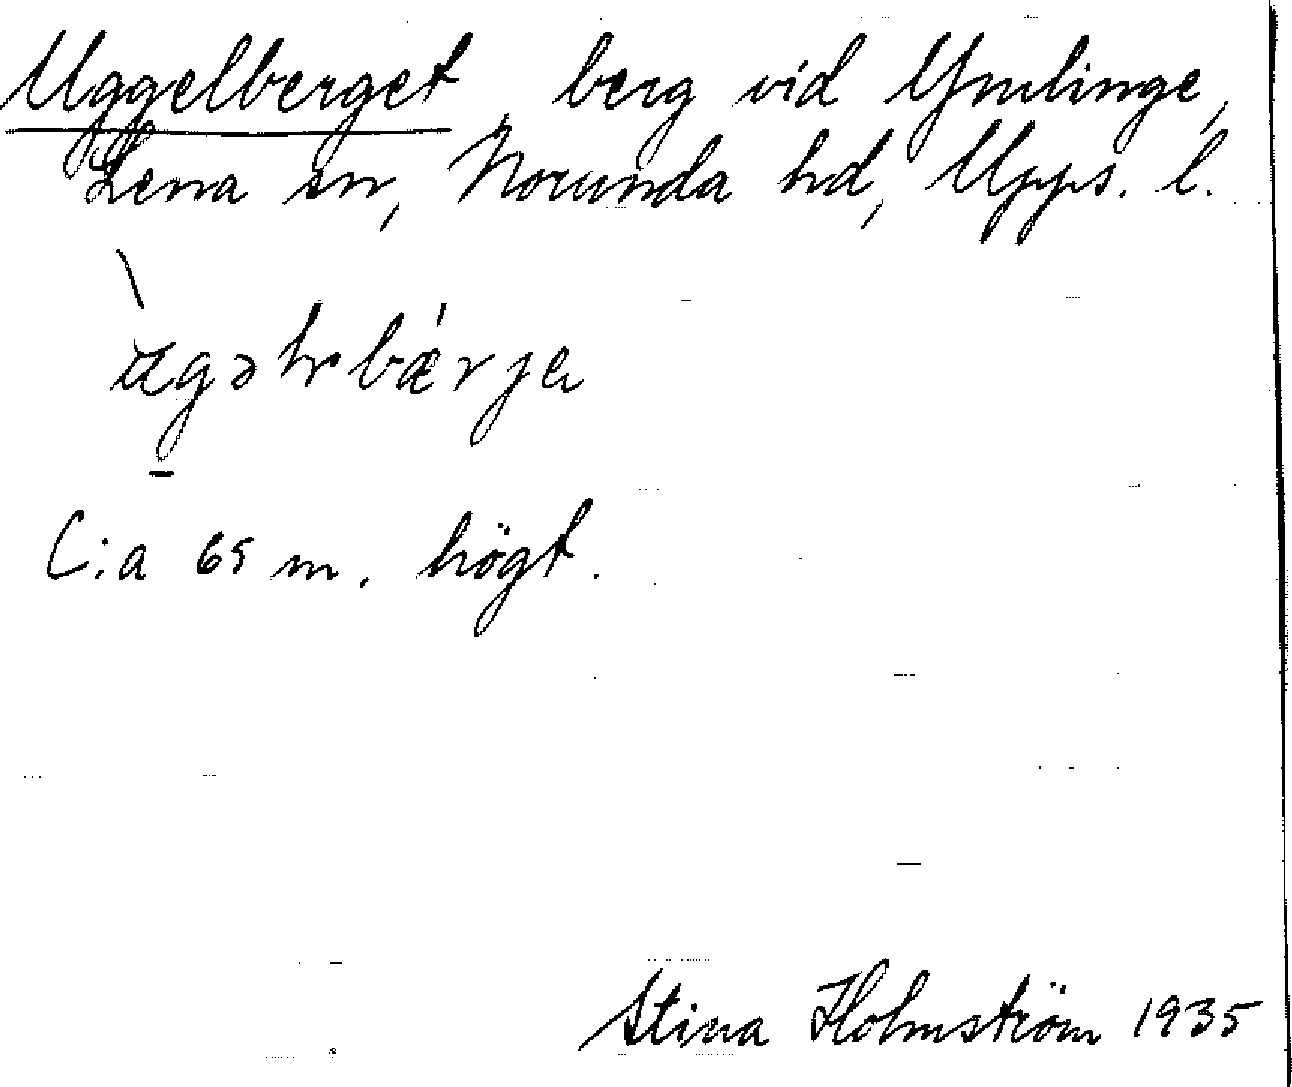 Uggelberget, berg vid Ymlinge,
Lena sn, Norunda hd, Upps. l.
C:a 65 m. högt.
Stina Holmström 1935